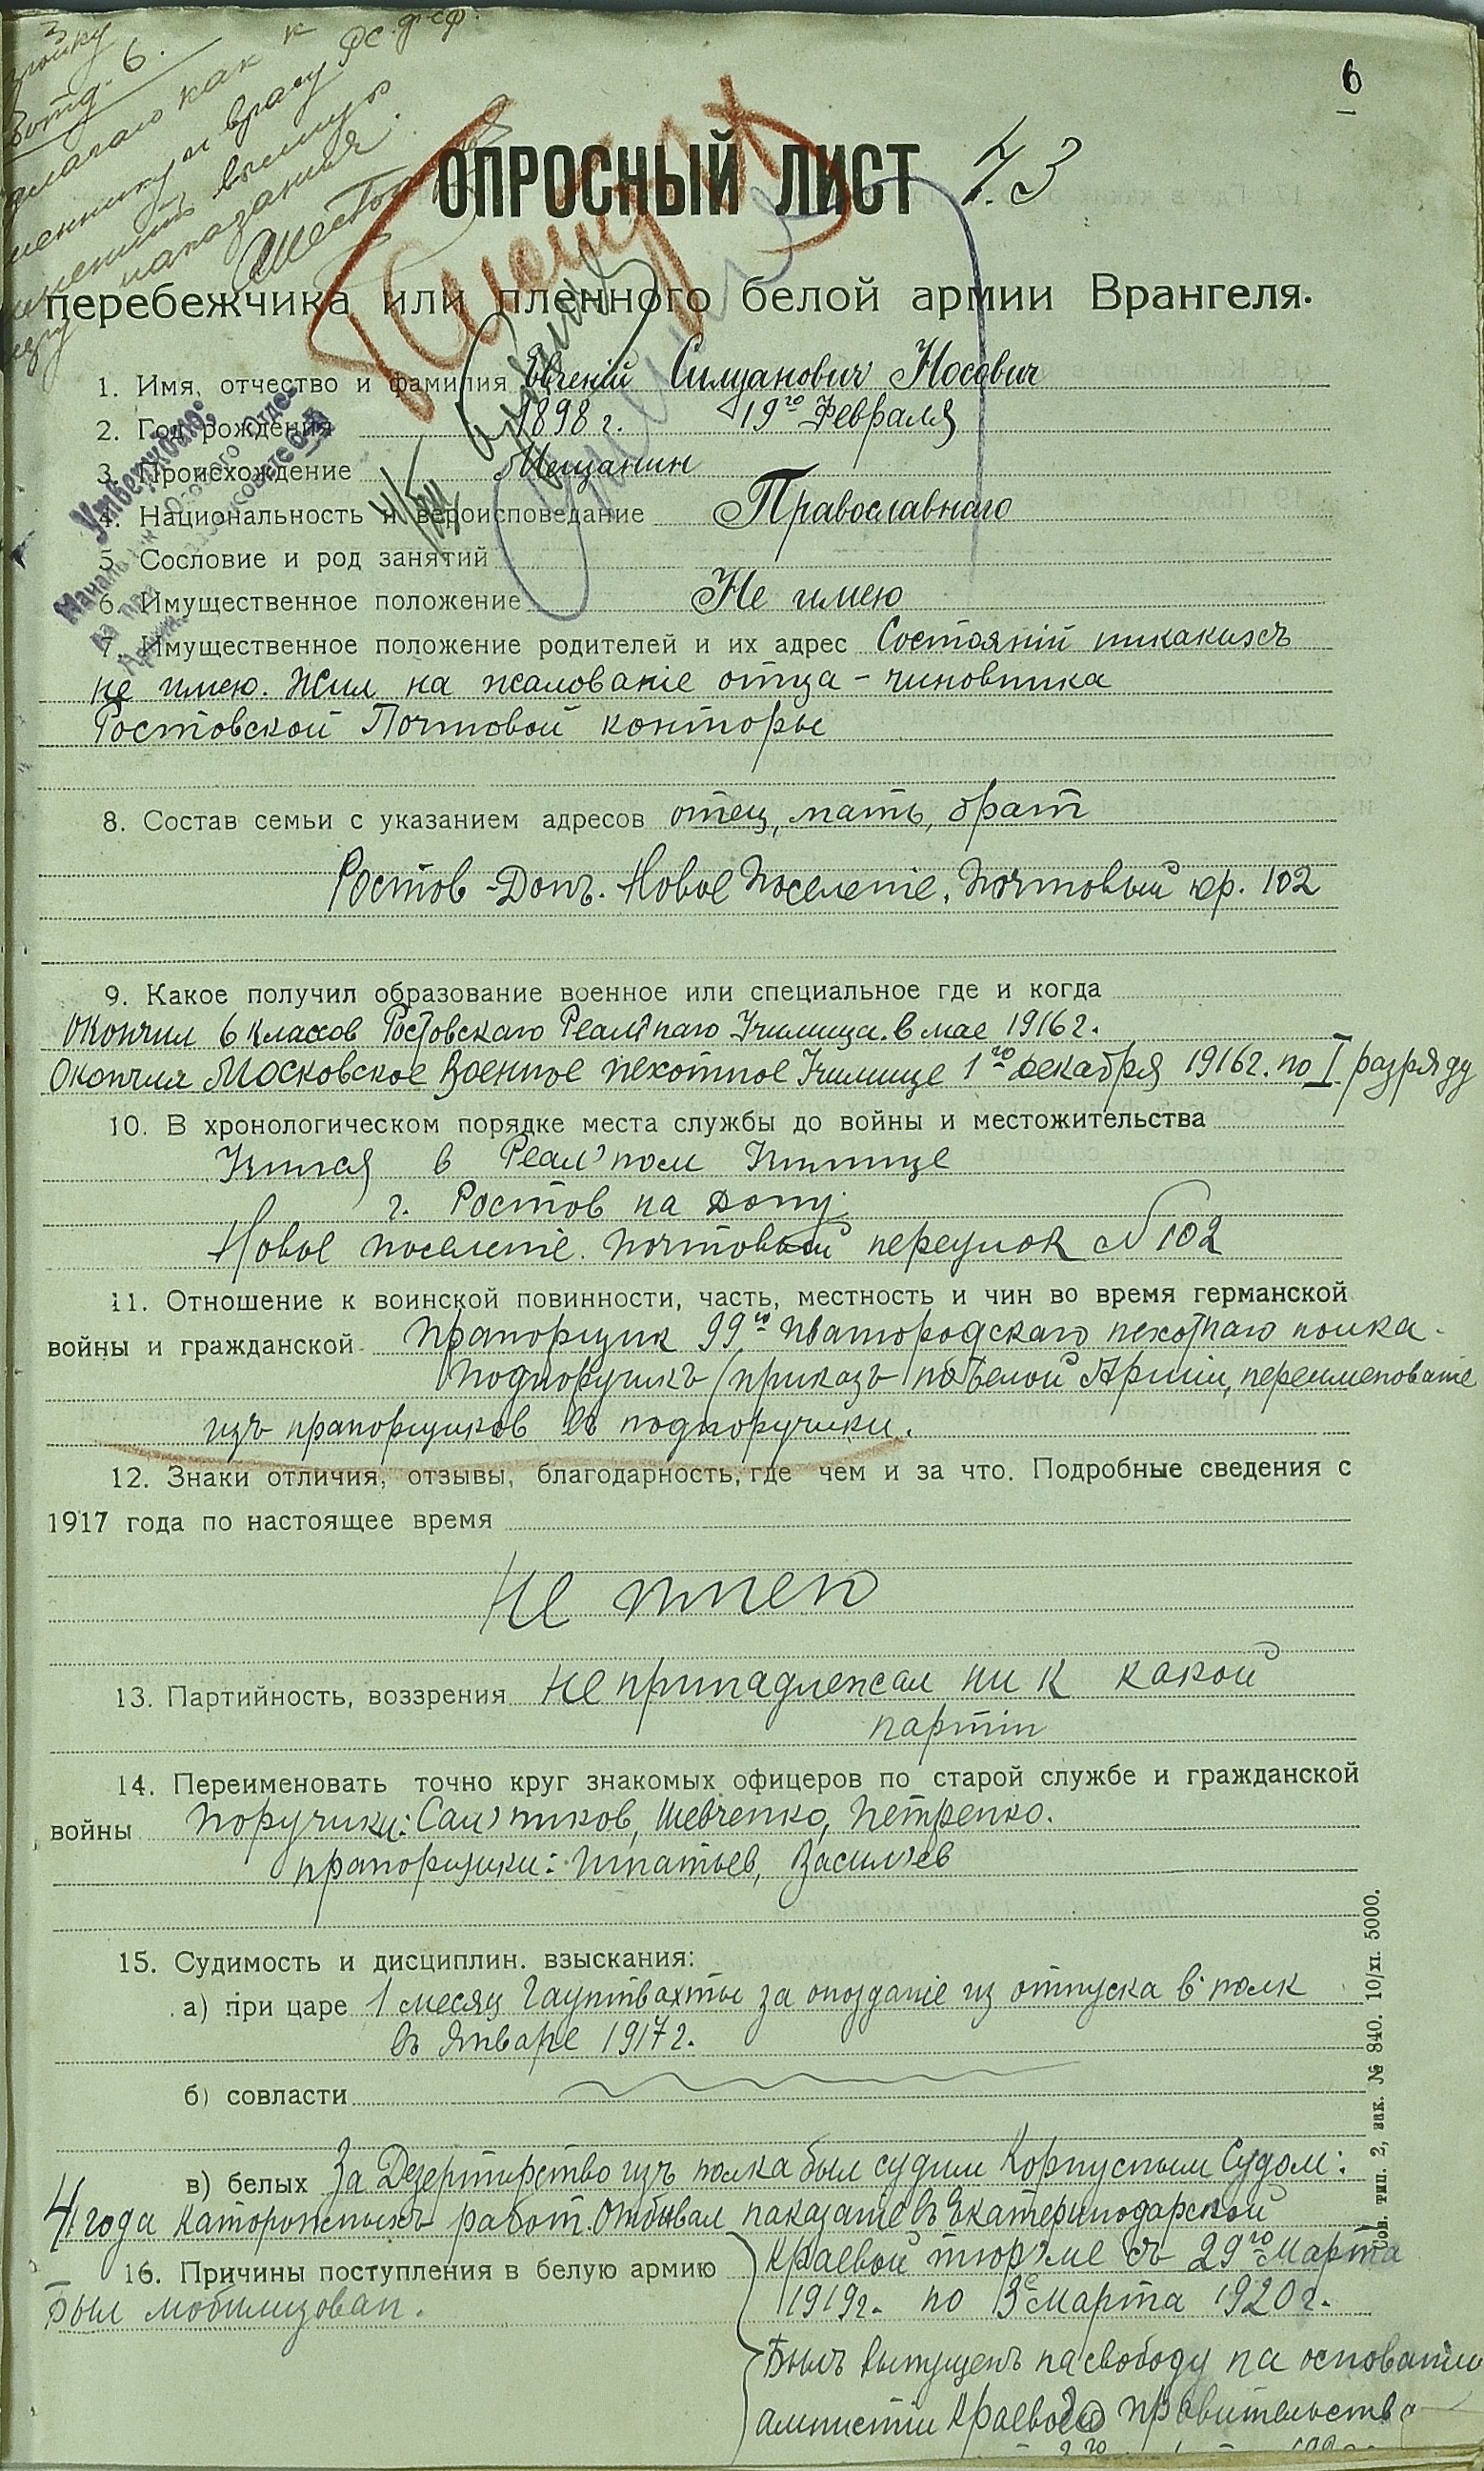 6
в. отд. 6.
как к
и врагу РСФСР.
высшую
наказания.
ОПРОСНЫЙ ЛИСТ
перебежчика или пленного белой армии Врангеля.
1. Имя, отчество и фамилия Евгеній Силуанович Носович
2. Год рождения 1898 г. 19го Февраля
3. Происхождение Мещанин
4. Национальность и вероисповедание Православнаго
5. Сословие и род занятий
6. Имущественное положение Не имею
Утверждаю:
7. Имущественное положение родителей и их адрес Состояній никакихъ
не имею. Жил на жалованіе отца - чиновника
Ростовской Почтовой конторы
8. Состав семьи с указанием адресов отец, мать, брат
Ростов-Донъ. Новое Поселеніе. Почтовый 102
9. Какое получил образование военное или специальное где и когда
Окончил 6 классов Ростовскаго Реальнаго Училища. в мае 1916 г.
Окончил Московское Военное пехотное Училище 1го декабря 1916 г. по I разряду
10. В хронологическом порядке места службы до войны и местожительства
Учился в Реальном Училище
г. Ростов на Дону.
Новое поселеніе. Почтовый переулок № 102
11. Отношение к воинской повинности, часть, местность и чин во время германской
войны и гражданской Прапорщик 99го Ивангородскаго пехотнаго полка.
Подпоручикъ (приказъ по Белой Арміи, переименованіе
изъ прапорщиков въ подпоручики.
12. Знаки отличия, отзывы, благодарность, где чем и за что. Подробные сведения с
1917 года по настоящее время
Не имею
13. Партийность, воззрения не принадлежал ни к какой
партіи
14. Переименовать точно круг знакомых офицеров по старой службе и гражданской
войны Поручики: Сальников, Шевченко, Петренко.
прапорщики: Игнатьев, Васильев
15. Судимость и дисциплин. взыскания:
а) при царе 1 месяц Гауптвахты за опозданіе из отпуска в полк
въ Январе 1917 г.
б) совласти
в) белых За Дезертирство изъ полка был судим Корпусным Судом:
4 года Каторжныхъ работ. Отбывал наказаніе въ Екатеринодарской
16. Причины поступления в белую армию Краевой тюрьме съ 29го Марта
Был мобилизован. 1919 г. по 3е Марта 1920 г.
Былъ выпущенъ на свободу на основаніи
амнистіи Краевого Правительства
Сов. тип. 2, зак. № 840. 10/XI. 5000.